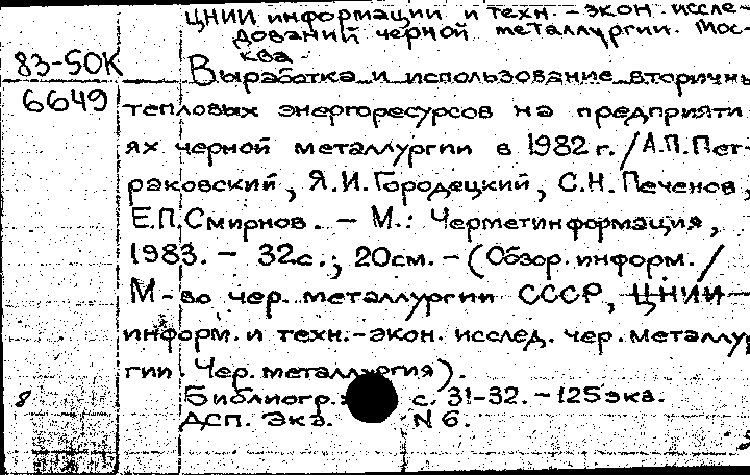 ЦНИИ информации и техн.-экон. иссле-
дований черной металлургии. Мос-
ква.
83-50К
Выработка и использование вторичны
6649
тепловых энергоресурсов на предприяти
ях черной металлургии в 1982 г. / А.П. Пет-
раковский, Я.И. Городецкий, С.Н. Печенов,
Е.П. Смирнов. - М.: Черметинформация,
1983. - 32 с.; 20 см. - (Обзор. информ. /
М-во чер. металлургии СССР, ЦНИИ
информ. и техн.-экон. исслед. чер. металлур
гии. Чер. металлургия).
Библиогр.: с. 31-32. - 125 экз.
ДСП. Экз. N 6.
8